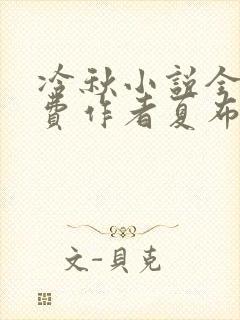 冷秋小説全
費作者夏布
文-貝克